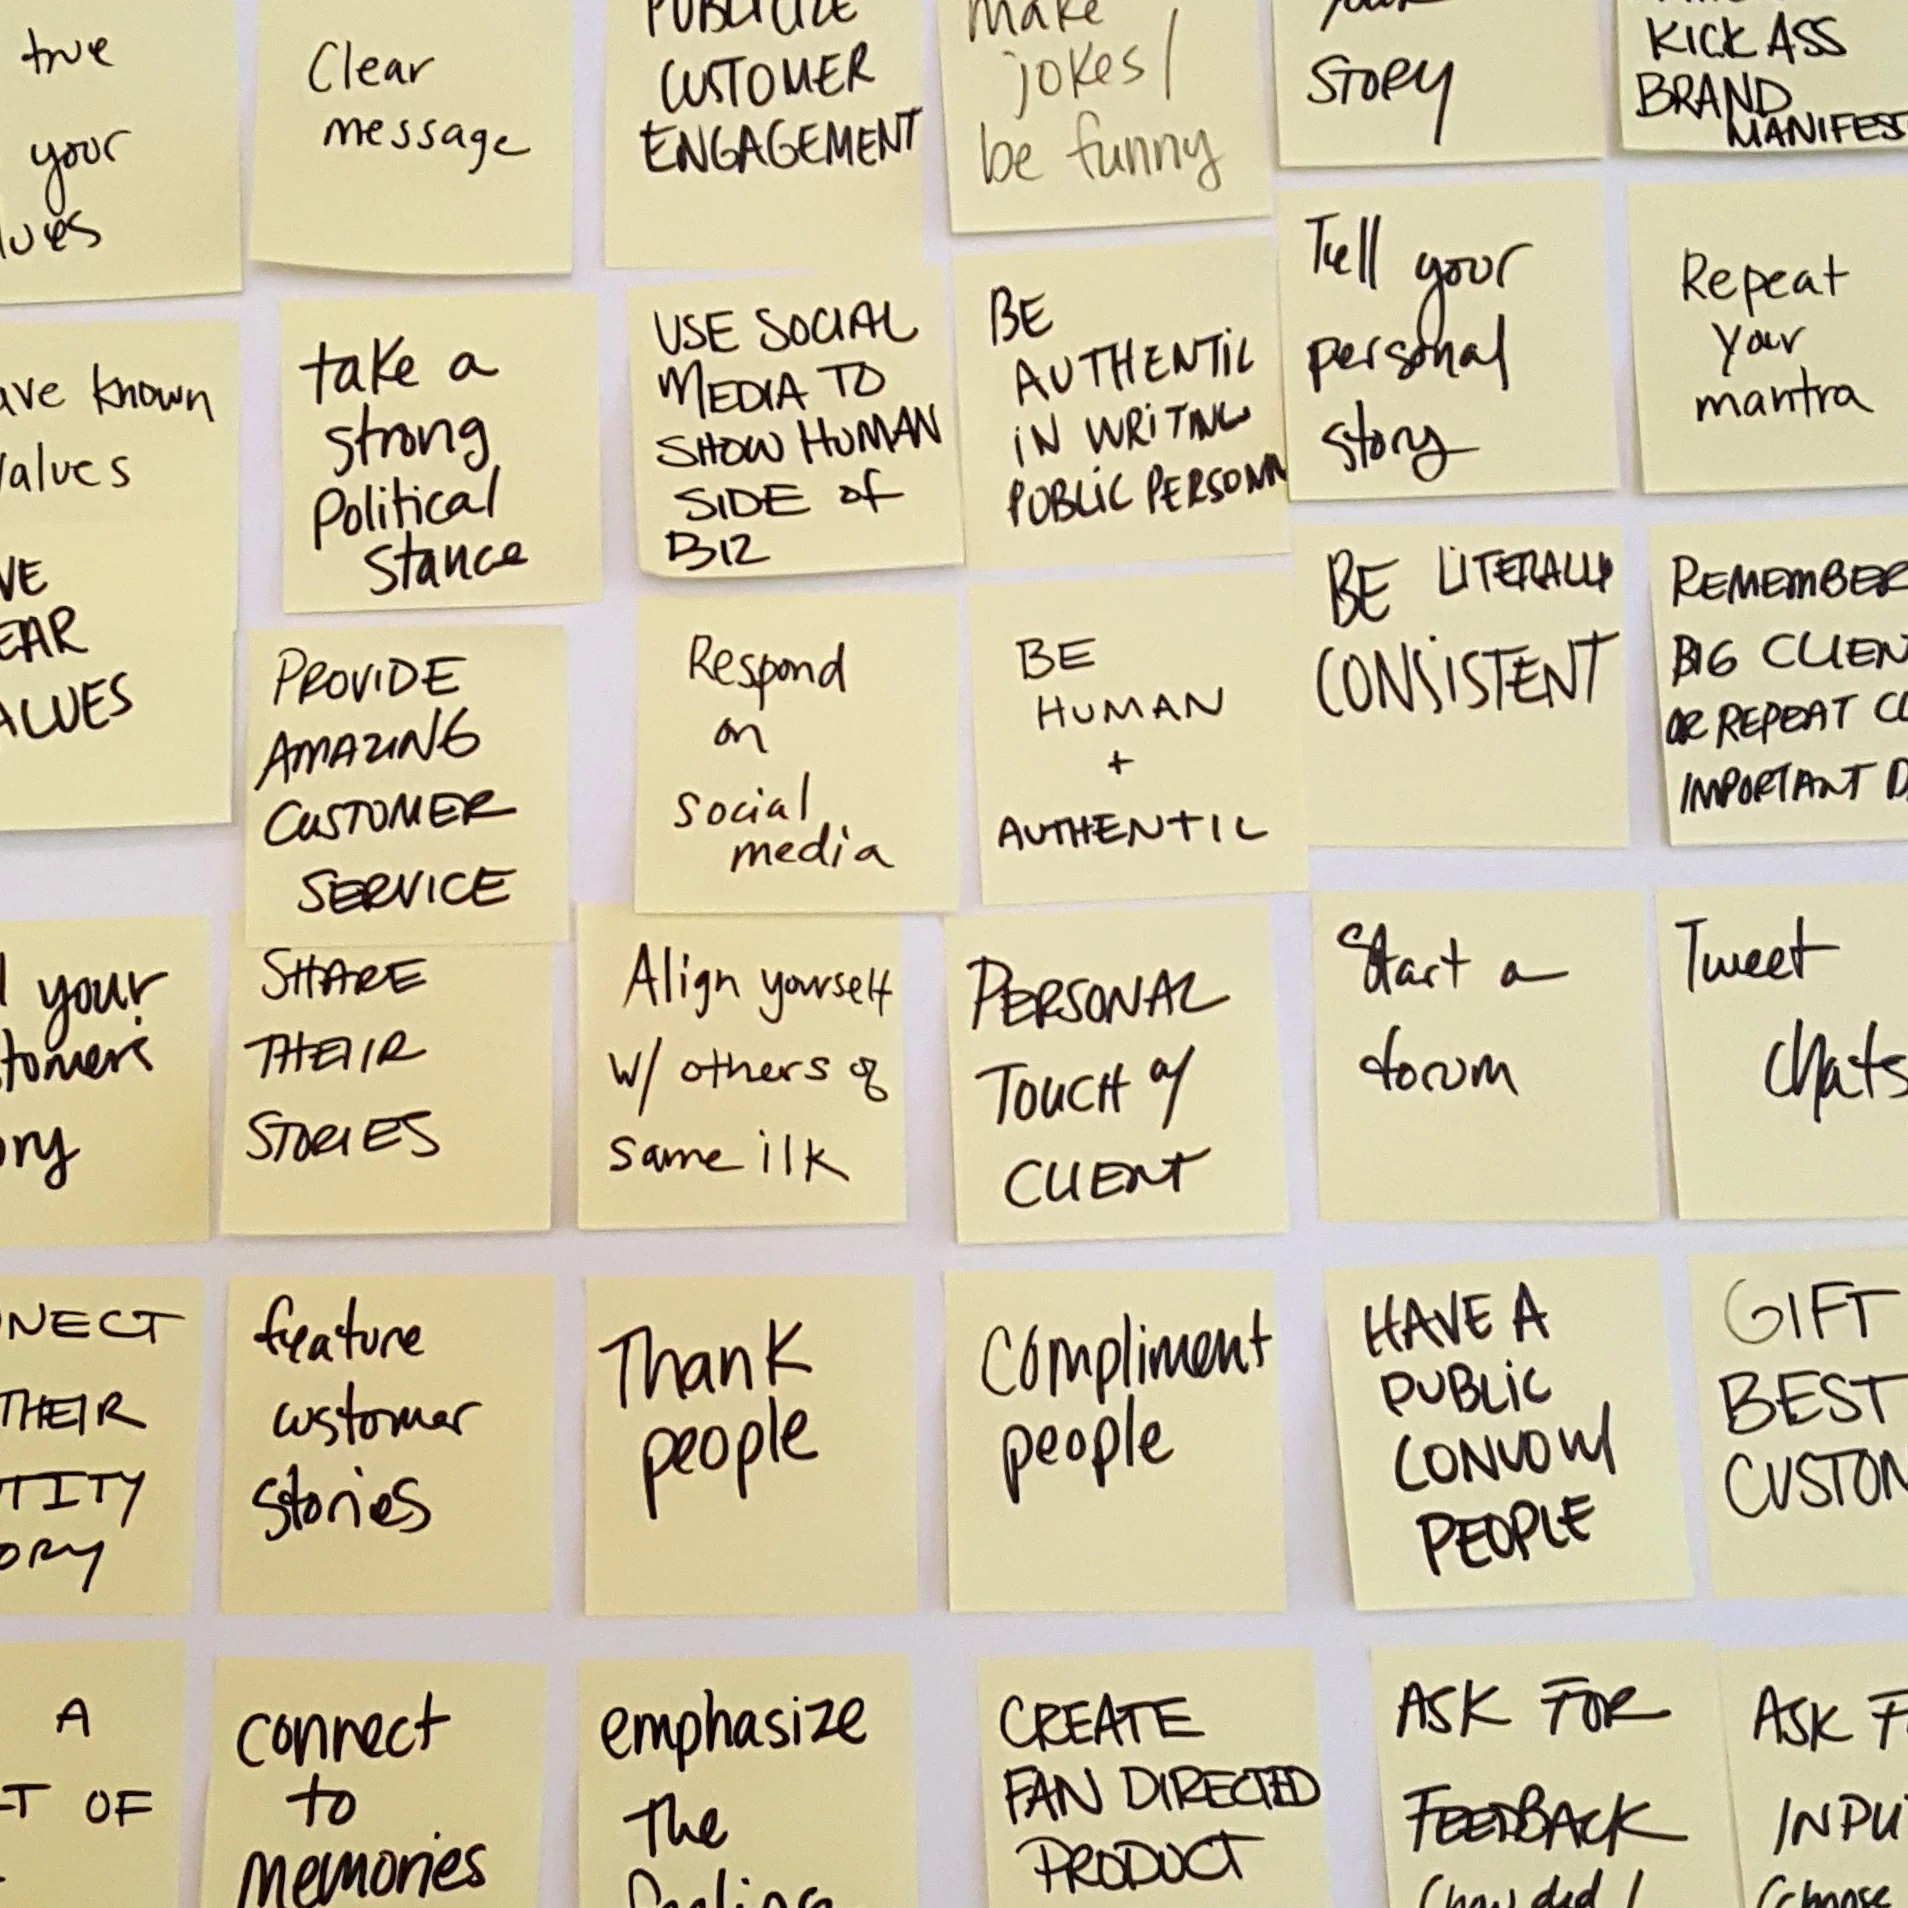 true
your
Clear
message
PUBLICIZE
CUSTOMER
ENGAGEMENT
make
jokes/
be funny
your
STORY
KICK ASS
BRAND
known
values
VALUES
take a
strong
Political
stance
USE SOCIAL
MEDIA TO
SHOW HUMAN
SIDE of
BIZ
BE
AUTHENTIC
IN WRITING
PUBLIC PERSONA
Tell your
personal
story
Repeat
your
mantra
PROVIDE
AMAZING
CUSTOMER
SERVICE
Respond
on
social
media
BE
HUMAN
+
AUTHENTIC
BE LITERALLY
CONSISTENT
REMEMBER
BIG CLIEN
OR REPEAT CL
IMPORTANT D
your
SHARE
THEIR
STORIES
Align yourself
w/ others of
same ilk
PERSONAL
TOUCH w/
CLIENT
Start a
forum
Tweet
Chats
NECT
THEIR
TITY
ORY
feature
customer
stories
Thank
people
Compliment
people
HAVE A
PUBLIC
CONVO W/
PEOPLE
GIFT
BEST
CUSTOM
A
T OF
connect
to
memories
emphasize
The
feeling
CREATE
FAN DIRECTED
PRODUCT
ASK FOR
FEEDBACK
(how did I
ASK F
INPU
(choose